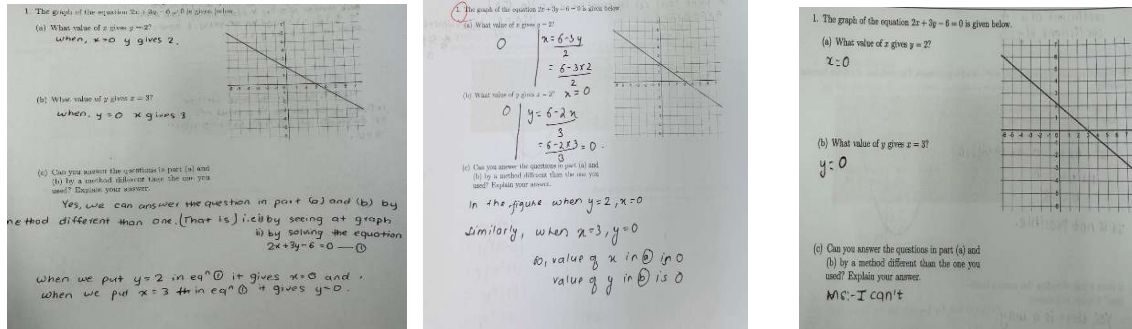 1. The graph of the equation 2x + 3y - 6 = 0 is given below.
(a) What value of x gives y = 2?
when, x=0 y gives 2.
(b) What value of y gives x = 3?
when, y=0 x gives 3
(c) Can you answer the questions in part (a) and
(b) by a method different than the one you
used? Explain your answer.
Yes, we can answer the question in part (a) and (b) by
method different than one. (That is) i.e i) by seeing at graph
ii) by solving the equation
2x+3y-6=0 —①
when we putt y=2 in eqⁿ ① it gives x=0 and,
when we put x=3 in eqⁿ ① it gives y=0.
1. The graph of the equation 2x + 3y - 6 = 0 is given below
(a) What value of x gives y = 2?
0
x=6-3y
2
= 6-3x2
2
x=0
(b) What value of y gives x = 3?
0
y=6-2x
3
=6-2x3=0.
3
(c) Can you answer the questions in part (a) and
(b) by a method different than the one you
used? Explain your answer.
In the figure when y=2, x=0
Similarly, when x=3, y=0
so, value of x in ⓐ is 0
value of y in ⓑ is 0
1. The graph of the equation 2x + 3y - 6 = 0 is given below.
(a) What value of x gives y = 2?
x=0
(b) What value of y gives x = 3?
y=0
(c) Can you answer the questions in part (a) and
(b) by a method different than the one you
used? Explain your answer.
Ms:-I can't